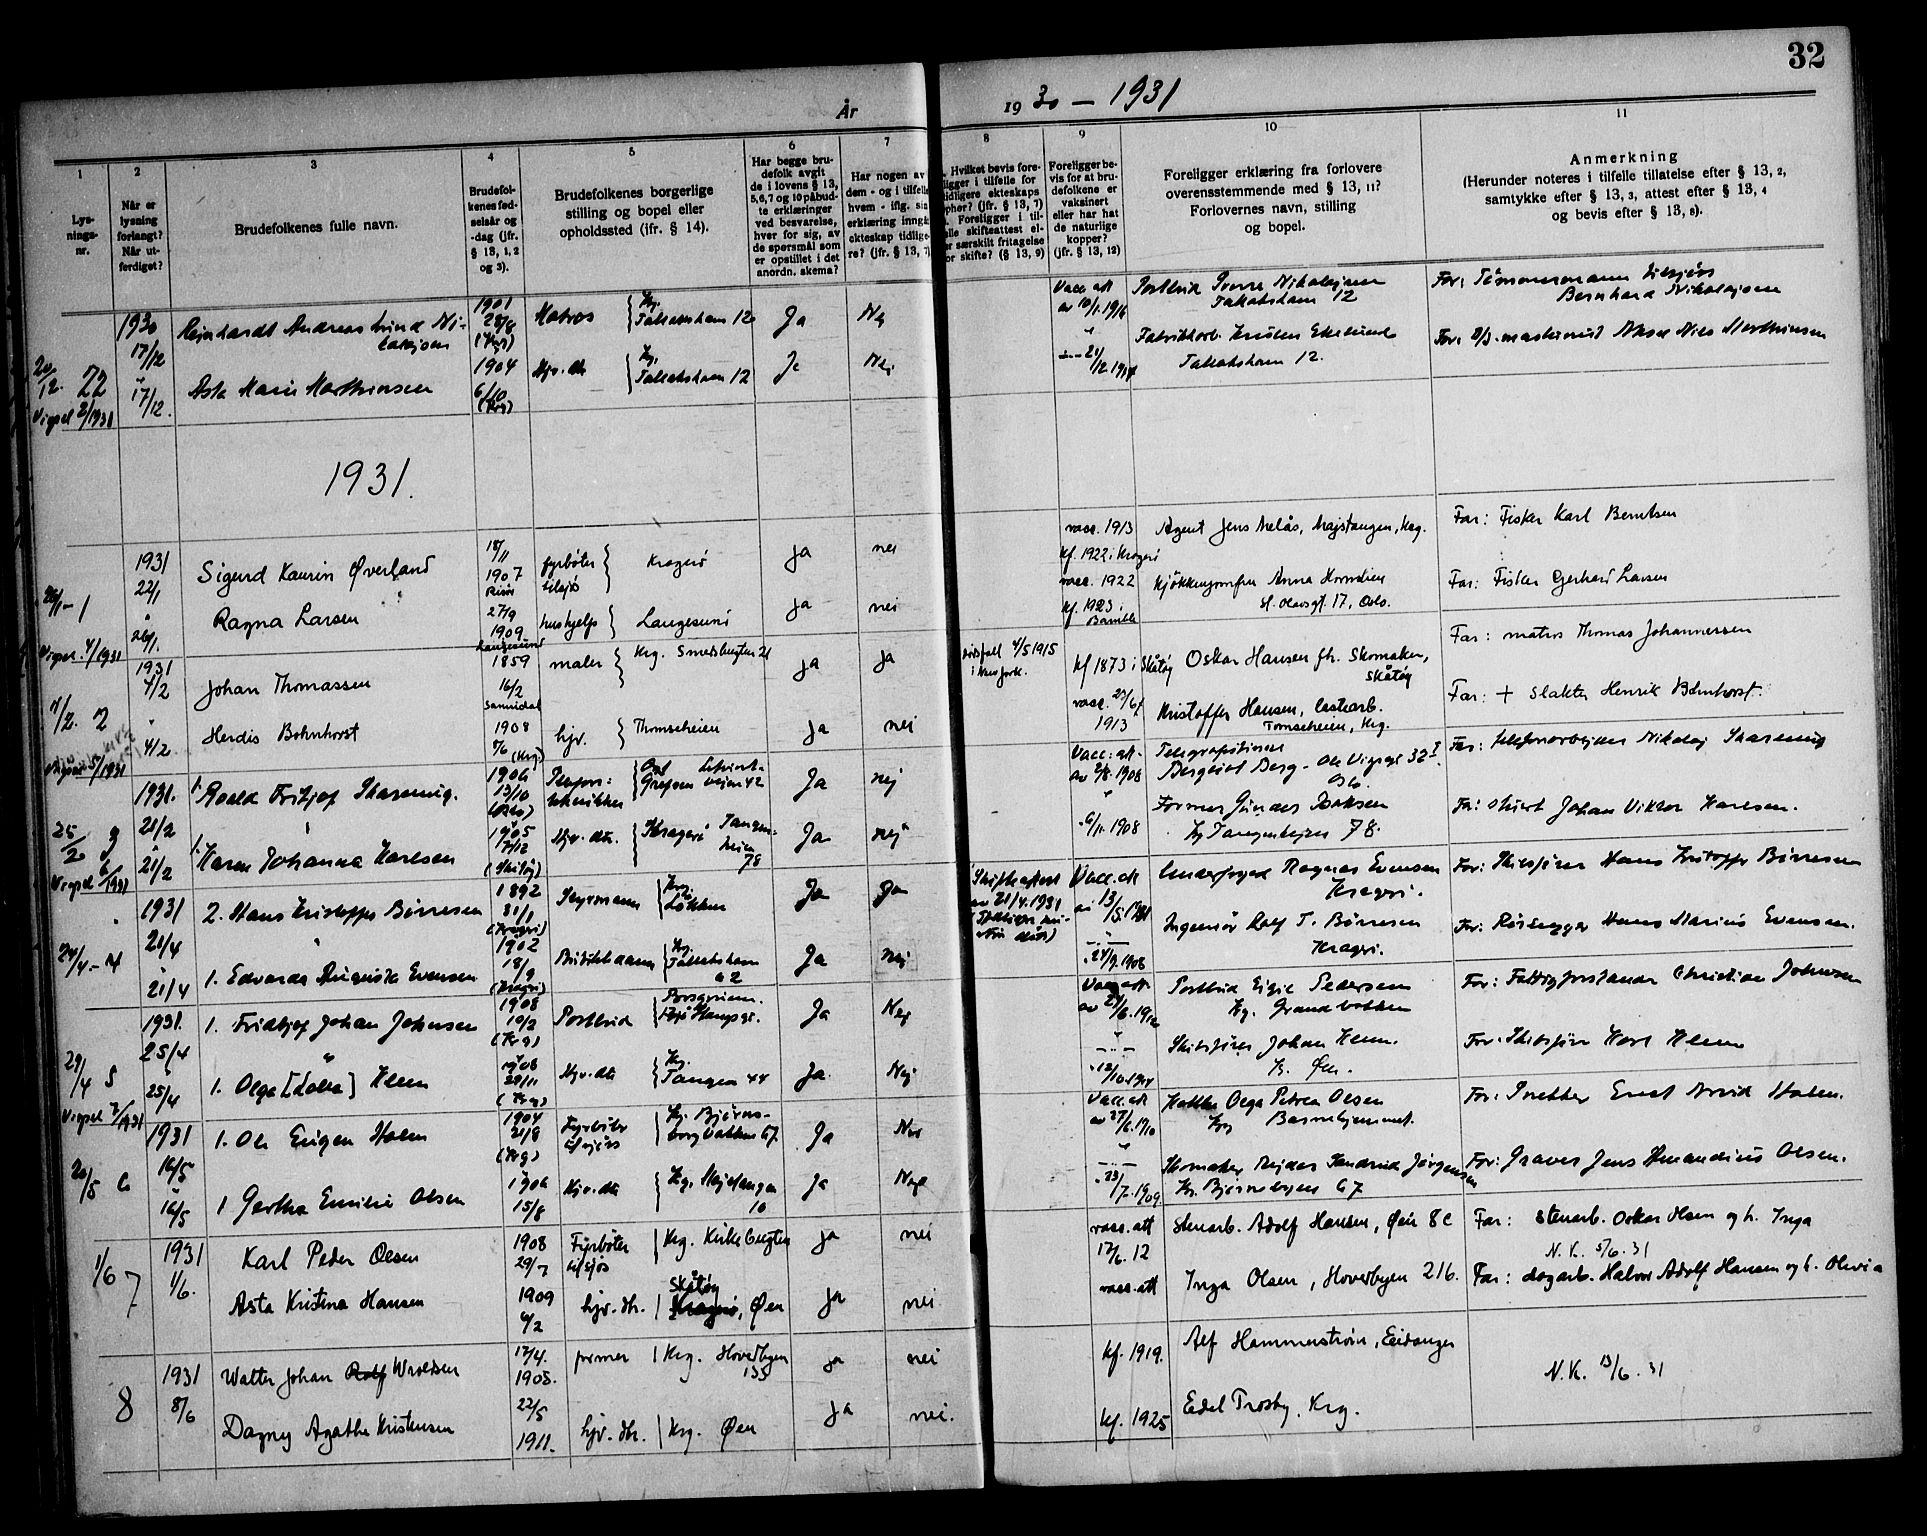 32
År 1930 - 1931
1
Lys-
nings-
nr.
2
Når er
lysning
forlangt?
Når ut-
ferdiget?
3
Brudefolkenes fulle navn.
4
Brudefol-
kenes fød-
selsår og
-dag (jfr.
§ 13, 1, 2
og 3).
5
Brudefolkenes borgerlige
stilling og bopel eller
opholdssted (ifr. § 14).
6
Har begge bru-
defolk avgit
de i lovens § 13,
5,6,7 og 10 påbud-
te erklæringer
ved besvarelse,
hver for sig, av
de spørsmål som
er opstillet i det
anordn. skema?
7
Har nogen av
dem - og i tilfelle
hvem - iflg. sin
erklæring inngå
ekteskap tidlige-
re? (jfr. § 13, 7)
8
Hvilket bevis fore-
ligger i tilfelle for
tidligere ekteskaps
ophør? (jfr. § 13, 7)
Foreligger i til-
elle skifteattest el-
or særskilt fritagelse
or skifte? (§ 13, 9)
9
Foreligger be-
vis for at bru-
defolkene er
vaksinert
eller har hat
de naturlige
kopper?
(jfr. § 13, 12)
10
Foreligger erklæring fra forlovere
overensstemmende med § 13, 11?
Forlovernes navn, stilling
og bopel.
11
Anmerkning
(Herunder noteres i tilfelle tillatelse efter § 13, 2,
samtykke efter § 13, 3, attest efter § 13, 4
og bevis efter § 13, 8).
20/12. 22
Vigsel 2/1931
1930 17/12
Reinhardt Andreas Lund Ni-
kolajsen
1901 28/8 (Krg)
Matros Krg. Tallakshavn 12 Ja Nej
Vacc. att av 10/1.1916
Tallakshavn 12
Bernhard Nikolajsen
17/12.
Asta Marie Marthinsen
1904 6/10 (Krg)
Hjv. dtr. Kg. Tallakshavn 12 Ja Nei
Tallakshavn 12.
1931.
26/1 - 1
Vigsel. 4/1931
1931 22/1
Sigurd Kaurin Øverland
18/11 1907
fyrbøter tilsjøs Kragerø ja nei
vacc. 1913 kf. 1922 i Kragerø
Agent Jens Melås, Majstangen, Krg.
Far: Fisker Karl Berntsen
26/1.
Ragna Larsen
27/9 1909. Langesund
hushjelp Langesund ja nei
vacc. 1922 kf. 1923 i Bamble
St. Olavsgt. 17, Oslo.
Far: Fisker Gerhard Larsen
7/2. 2
Vigsel 5/1931
1931 4/2
Johan Thomassen
1859 16/2 Sannidal
maler Krg. Smedsbugten 21 ja ja
dødsfall 4/5 1915
kf 1873 i Skåtøy
Oskar Hansen fh. Skomaker,
Skåtøy
Far: matros Thomas Johannessen
4/2.
Herdis Bohnhorst
1908 (Krg.)
hjv. Thomseheien ja nei
vacc. 23/6 1913
Kristoffer Hansen, lastearb.
Tomseheien, Krg.
Far: + slakter Henrik Bohnhorst.
25/2 3
Vigsel 6/1931
1931. 21/2
1. Roald Fritjof Skarnnig.
1906 13/10 (Oslo)
Ja nej
Vacc. att. av 2/8.1908
Bergliot Berg - Ole Vigsgt 32 I Oslo.
21/2
1. Karen Johanna Karlsen
1905 7/12 (Skåtøy)
Hjv. dtr. Kragerø Tangen-
heien 78 Ja nej
6/11.1908
Kg Tangenheien 78.
Far: Stuert Johan Viktor Karlsen.
24/4 - 4
1931 21/4
2. Hans Kristoffer Børresen
1892 31/1 (Kragerø)
Styrmann Krg. Løkken Ja Ja
Skifteattest av 21/4.1931
Vacc. att av 13/5.1931
Underfoged Ragnar Evensen
Kragerø.
Far: Skibsfører Hans Kristoffer Børresen
21/4
1. Edvarda Augusta Evensen
1902 18/9 (Kragerø)
Kg. Tallakshavn 62 Ja nej
24/9.1908
Ingeniør Rolf T. Børresen
Kragerø.
Far: Hans Marius Evensen.
29/4 5
Vigsel 7/1931
1931. 25/4
1. Fridtjof Johan Johnsen
1908 10/2 (Krg)
Postbud Ja Nej
Vacc. att av 1912
Postbud Eigil Pedersen
Kg. Grandbakken
Far: Fattigforstander Christian Johnsen
25/4
1. Olga [Lolla] Klem
1908 29/11 (Krg)
Hjv. dtr. Kg. Tangen 44 Ja Nej
Skibsfører Johan Klem.
K. Øen.
Far: Skibsfører Karl Klem
20/5 6
1931 16/5
1. Ole Eugen Holm
1904 21/8 (Krg)
Fyrbøter tilsjøs Kg. Bjørns-
borgbakken 67. Ja Nei
Vacc. att av 27/6.1910
Olga Petrea Olsen
Krg Barnehjemmet.
Far: Snekker Ernst Arvid Holm.
16/5
1 Gertha Emilie Olsen
1906 15/8
Hjv. dtr. Kg. Majstangen 10 Ja Nej
23/7.1909.
Skomaker Reidar Sandrud Jørgensen
67
Far: Graver Jens Amandius Olsen.
1/6 7
1931 1/6.
Karl Peder Olsen
1908 29/7
Fyrbøter tilsjøs Krg. Kirkebugten ja nei
vacc. att 17/6. 12
stenarb. Adolf Hansen, Øen 8c
Far: stenarb. Oskar Olsen og h. Inga
N.K. 5/6.31
Asta Kristina Hansen
1909 6/2
hjv. dtr. Skåtøy Kragerø, Øen ja nei
vacc. att
Inga Olsen, Hovedbyen 216.
Far: dagarb. Halvor Adolf Hansen og h. Olivia
8
1931 8/6
Walter Johan Rolf Wroldsen
17/4. 1908.
former Krg. Hovedbyen 135 ja nei
kf. 1919.
Alf Hammerstrøm, Eidanger
N.K. 13/6.31
Dagny Agathe Kristensen
22/5 1911.
hjv. dtr. Krg. Øen ja nei.
kf. 1925
Edel Trosby, Krg.